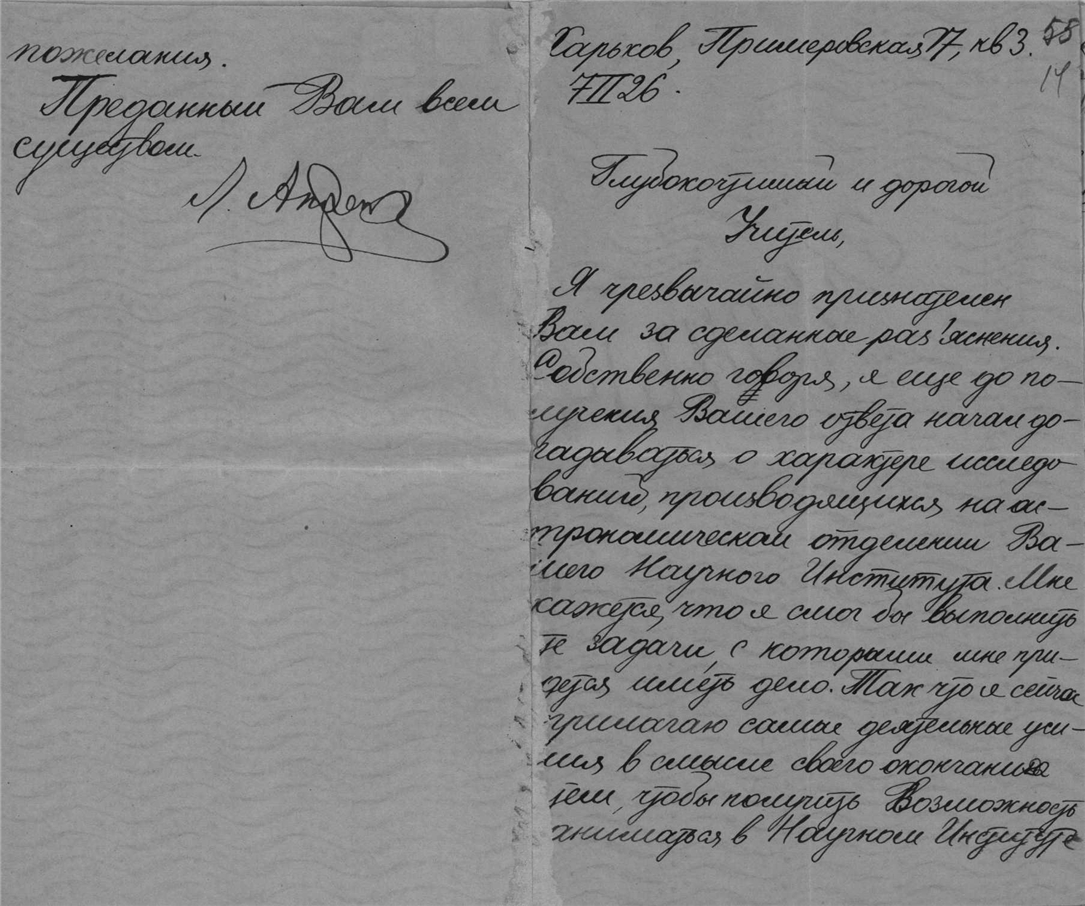 пожелания.
Преданный Вам всем
существом.
Л. Андрен
Харьков, Примеровская 17, кв 3.
58
14
7 II 26.
Глубокочтимый и дорогой
Учитель,
Я чрезвычайно признателен
Вам за сделанные раз'яснения.
Собственно говоря, я еще до по-
лучения Вашего ответа начал до-
гадываться о характере исследо
ваний, производящихся на ас-
трономическом отделении Ва-
шего Научного Института. Мне
кажется, что я смог бы выполнить
те задачи, с которыми мне при-
дется иметь дело. Так что я сейчас
прилагаю самые деятельные уси-
лия в смысле своего окончания
тем, чтобы получить возможность
заниматься в Научном Институте